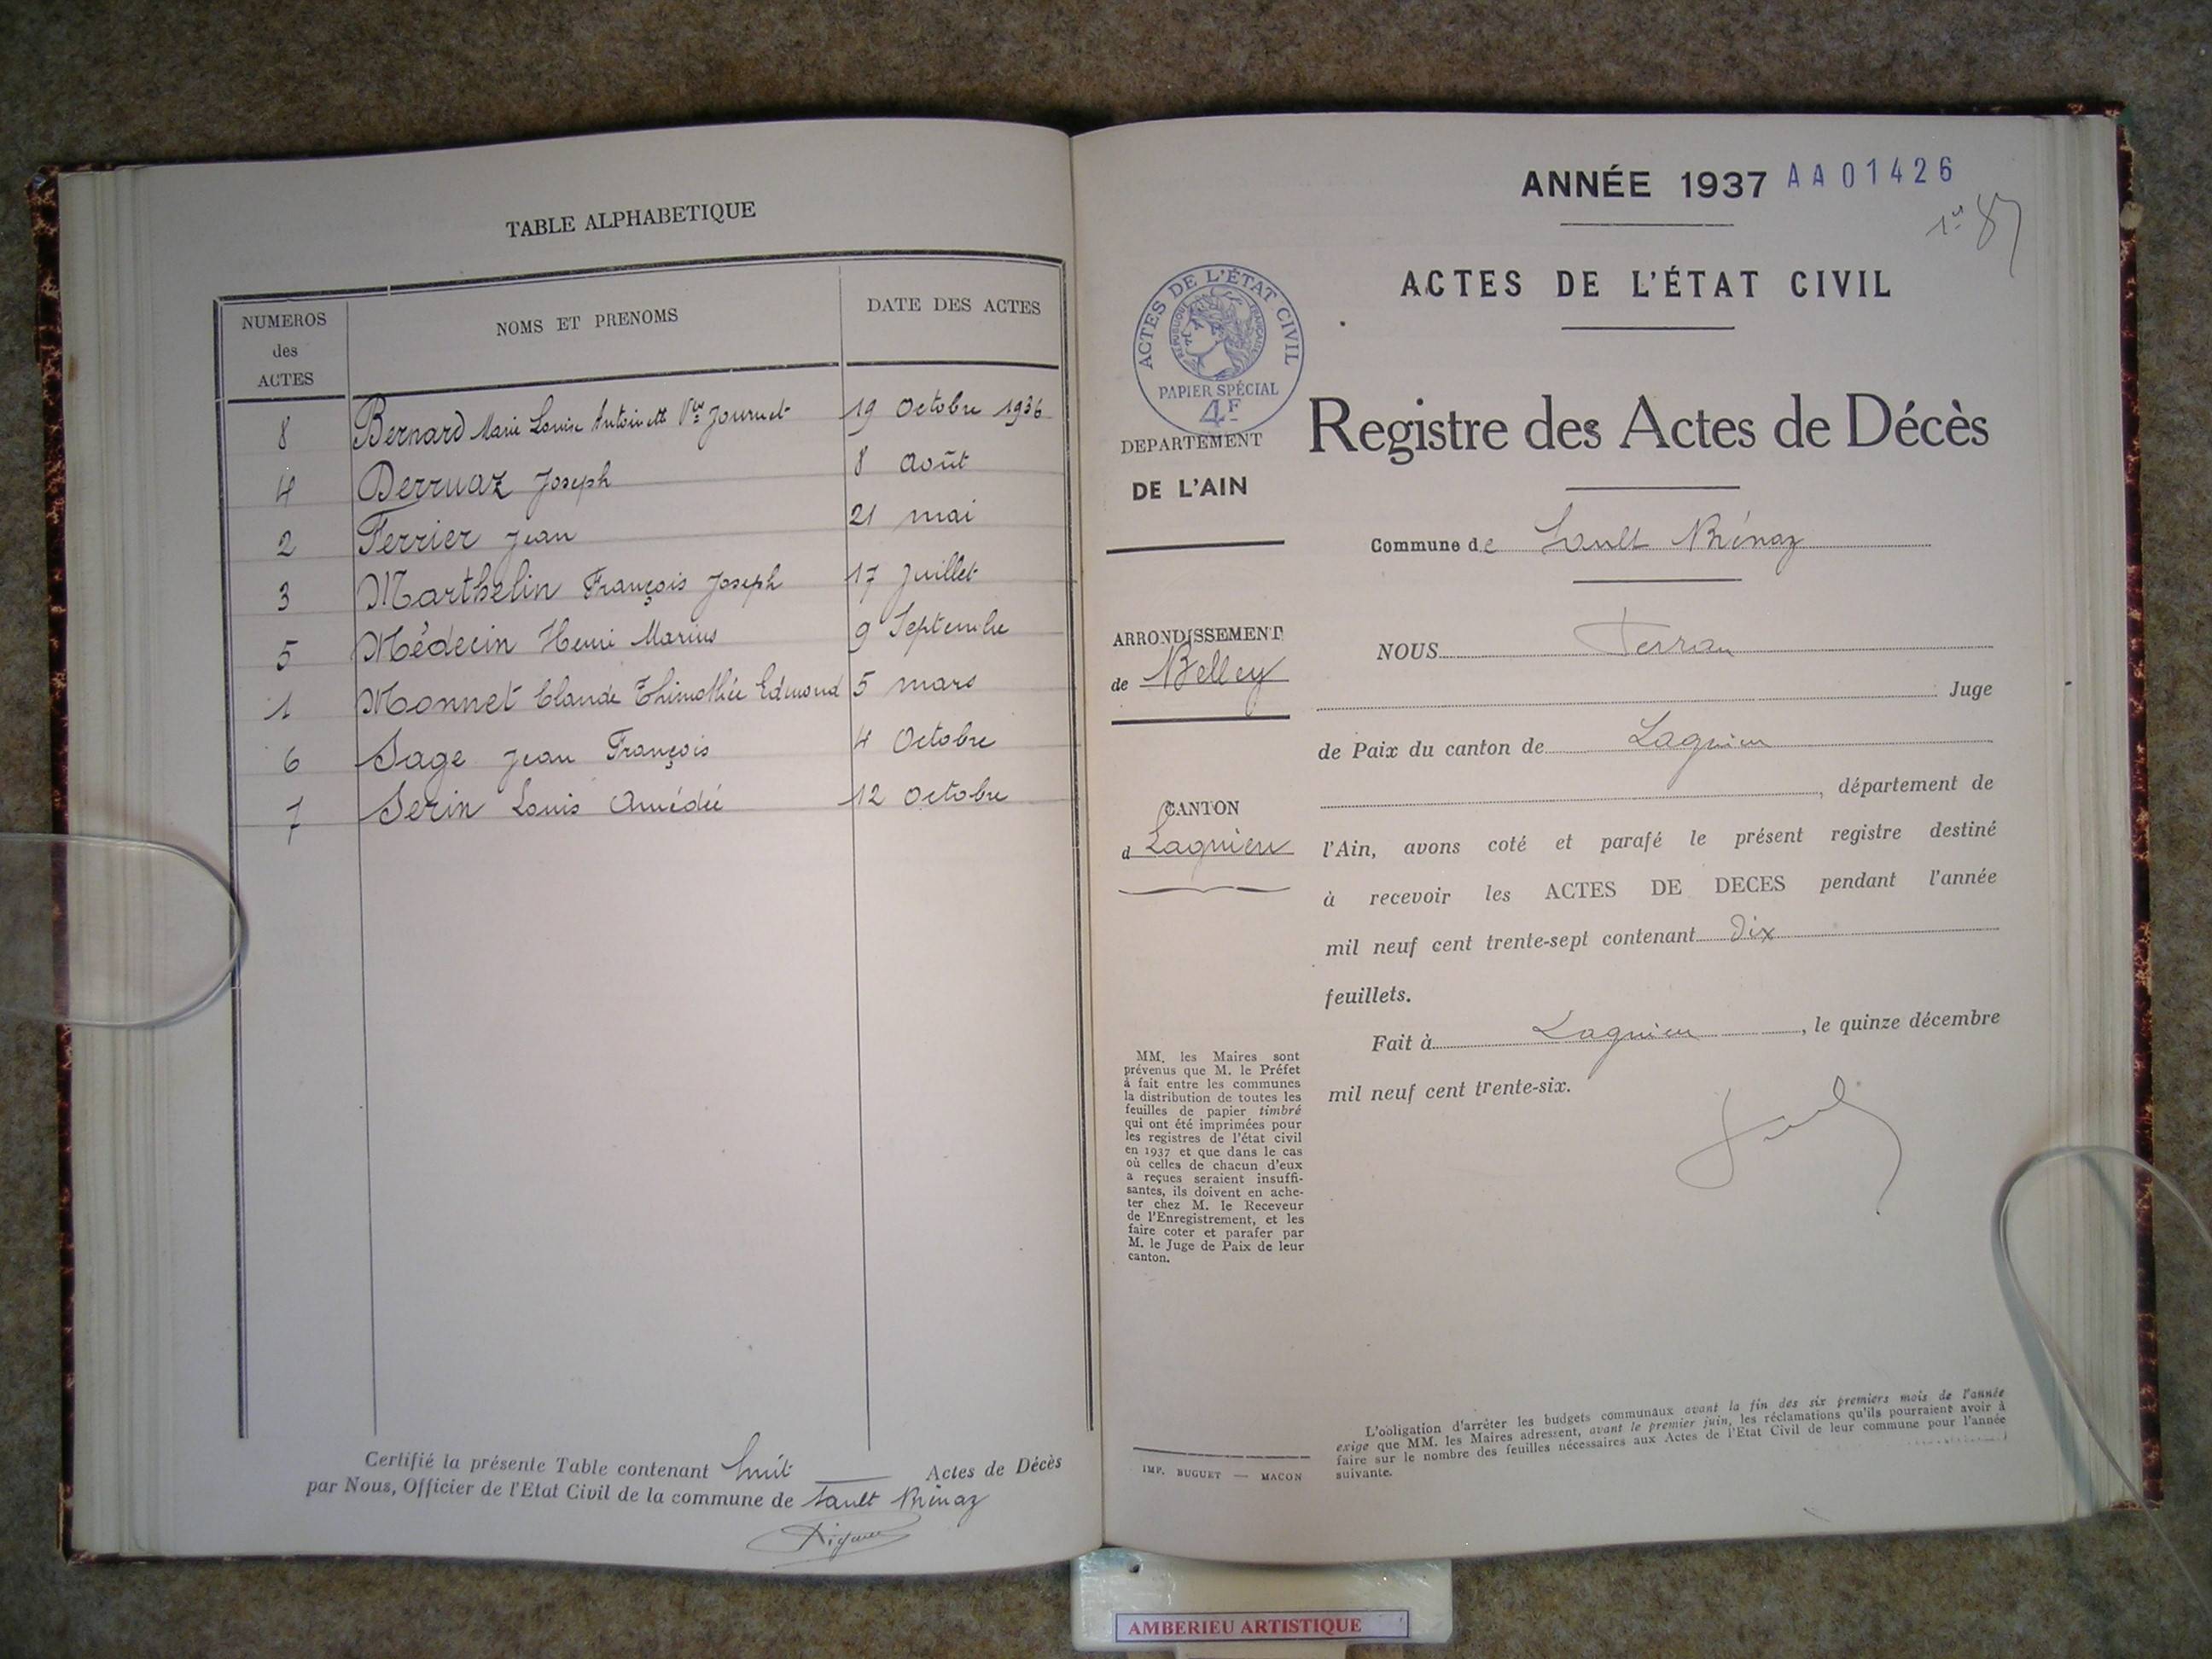 TABLE ALPHABETIQUE
NUMEROS des ACTES
NOMS ET PRENOMS
DATE DES ACTES
8 Bernard Marie Louise Antoinette Vve Journet 19 Octobre 1936
4 Derruaz Joseph 8 Août
2 Ferrier Jean 21 mai
3 Marthelin François Joseph 17 Juillet
5 Médecin Henri Marius 9 Septembre
1 Monnet Claude Thimothée Edmond 5 mars
6 Sage Jean François 4 Octobre
7 Serin Louis Amédée 12 Octobre
Certifié la présente Table contenant huit Actes de Décès
par Nous, Officier de l'Etat Civil de la commune de Sault Brénaz
ANNÉE 1937 AA01426
1er
ACTES DE L'ÉTAT CIVIL
ACTES DE L'ÉTAT CIVIL
RÉPUBLIQUE FRANÇAISE
PAPIER SPÉCIAL
4F
DEPARTEMENT
DE L'AIN
Registre des Actes de Décès
Commune de Sault Brénaz
ARRONDISSEMENT
de Belley
CANTON
d Lagnieu
NOUS Ferran
Juge
de Paix du canton de Lagnieu
, département de
l'Ain, avons coté et parafé le présent registre destiné
à recevoir les ACTES DE DECES pendant l'année
mil neuf cent trente-sept contenant Dix
feuillets.
Fait à Lagnieu, le quinze décembre
mil neuf cent trente-six.
MM. les Maires sont
prévenus que M. le Préfet
à fait entre les communes
la distribution de toutes les
feuilles de papier timbré
qui ont été imprimées pour
les registres de l'état civil
en 1937 et que dans le cas
où celles de chacun d'eux
a reçues seraient insuffi-
santes, ils doivent en ache-
ter chez M. le Receveur
de l'Enregistrement, et les
faire coter et parafer par
M. le Juge de Paix de leur
canton.
IMP. BUGUET — MACON
L'obligation d'arrêter les budgets communaux avant la fin des six premiers mois de l'année
exige que MM. les Maires adressent, avant le premier juin, les réclamations qu'ils pourraient avoir à
faire sur le nombre des feuilles nécessaires aux Actes de l'Etat Civil de leur commune pour l'année
suivante.
AMBERIEU ARTISTIQUE